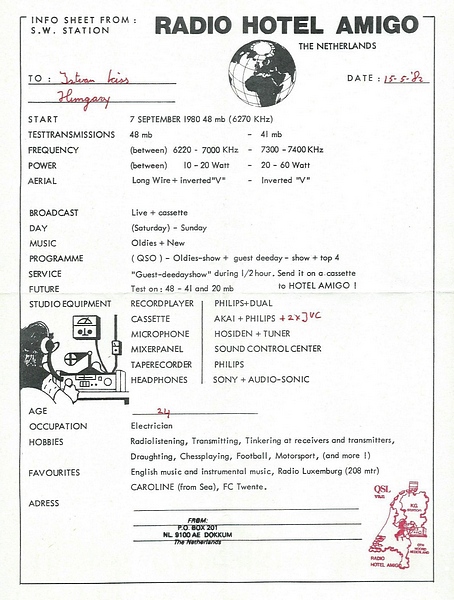 INFO SHEET FROM: RADIO HOTEL AMIGO
S.W. STATION
THE NETHERLANDS
TO: Istvan kiss DATE: 15-5-'82
Hungary
START 7 SEPTEMBER 1980 48 mb (6270 KHz)
TESTTRANSMISSIONS 48 mb - 41 mb
FREQUENCY (between) 6220 - 7000 KHz - 7300 - 7400 KHz
POWER (between) 10 - 20 Watt - 20 - 60 Watt
AERIAL Long Wire + inverted"V" - Inverted "V"
BROADCAST Live + cassette
DAY (Saturday) - Sunday
MUSIC Oldies + New
PROGRAMME ( QSO ) - Oldies-show + guest deeday - show + top 4
SERVICE "Guest-deedayshow" during 1/2 hour. Send it on a cassette
FUTURE Test on: 48 - 41 and 20 mb to HOTEL AMIGO !
STUDIO EQUIPMENT RECORDPLAYER PHILIPS+DUAL
CASSETTE AKAI + PHILIPS + 2x JVC
MICROPHONE HOSIDEN + TUNER
MIXERPANEL SOUND CONTROL CENTER
TAPERECORDER PHILIPS
HEADPHONES SONY + AUDIO-SONIC
AGE 24
OCCUPATION Electricien
HOBBIES Radiolistening, Transmitting, Tinkering at receivers and transmitters,
Draughting, Chessplaying, Football, Motorsport, (and more !)
FAVOURITES English music and instrumental music, Radio Luxemburg (208 mtr)
CAROLINE (from Sea), FC Twente.
ADRESS
FROM:
P.O. BOX 201
NL. 9100 AE DOKKUM
The Netherlands
QSL
KG
RADIO
HOTEL AMIGO